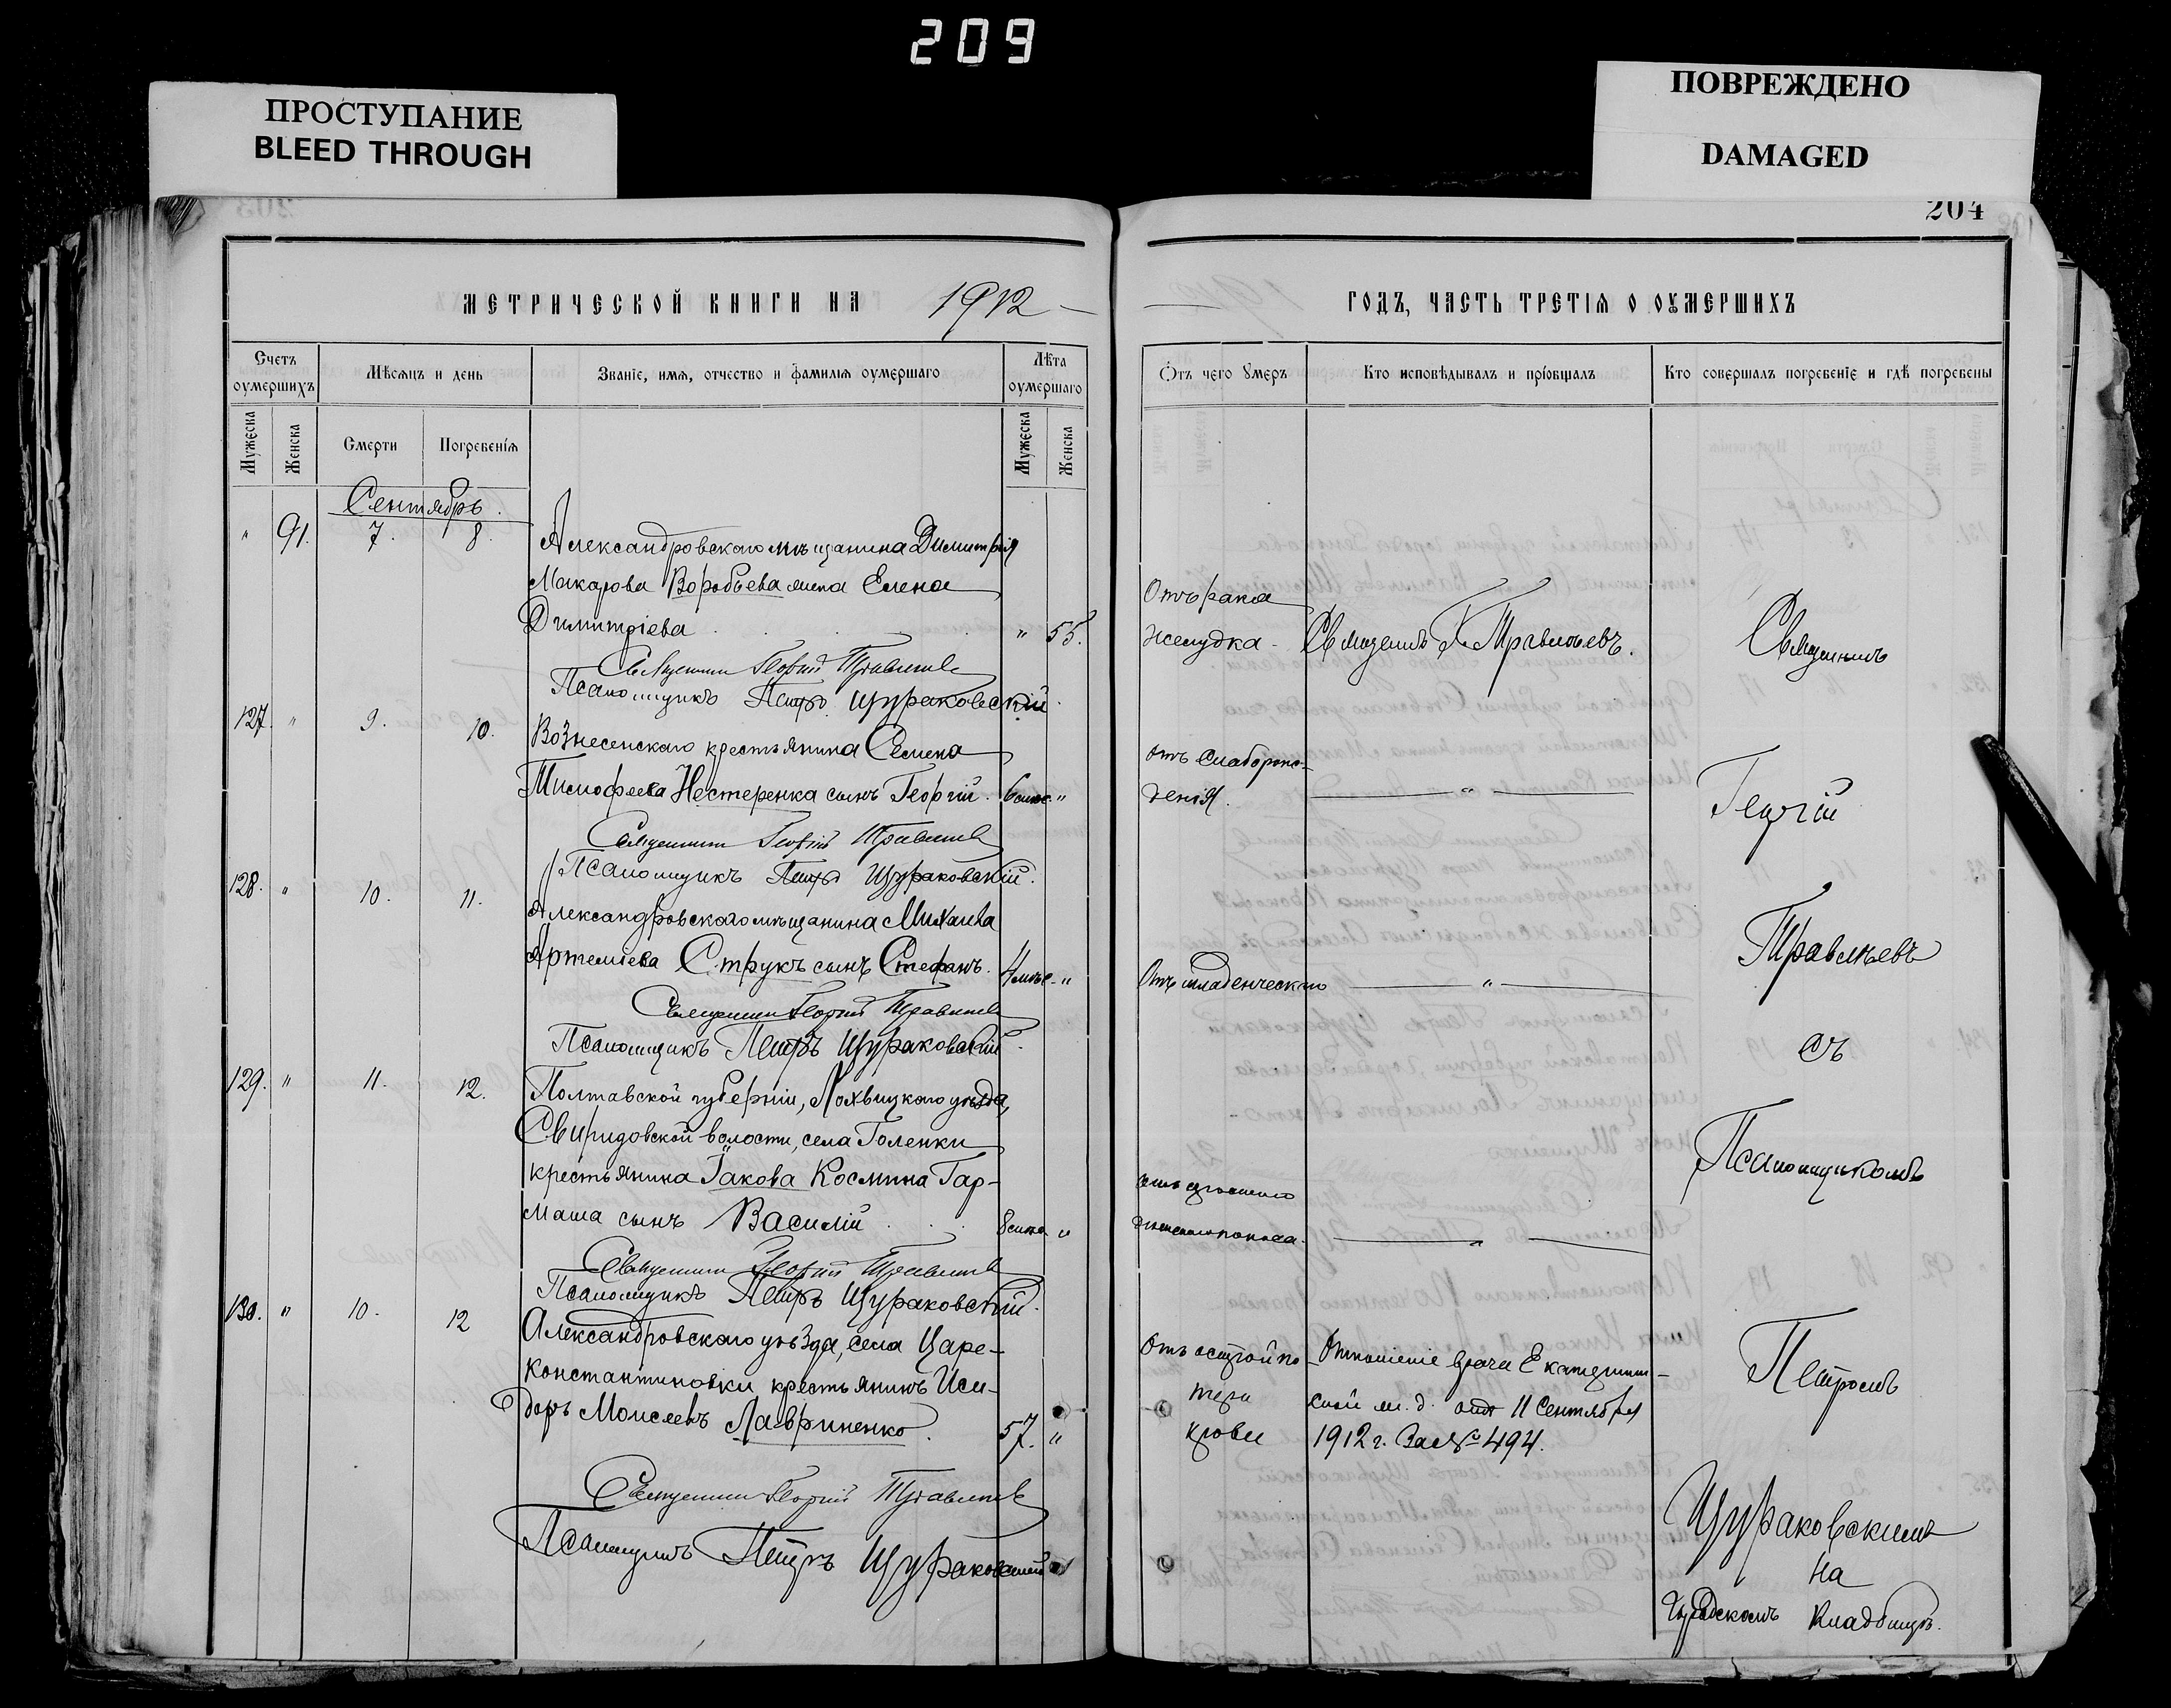 209
ПРОСТУПАНИЕ
BLEED THROUGH
ПОВРЕЖДЕНО
DAMAGED
204
МЕТРИЧЕСКОЙ КНИГИ НА 1912
ГОДЪ, ЧАСТЬ ТРЕТІЯ О ОУМЕРШИХЪ
Счетъ оумершихъ
Мѣсяцъ и день
Званіе, имя, отчество и фамилія оумершаго
Лѣта оумершаго
Отъ чего умеръ
Кто исповѣдывалъ и пріобщалъ
Кто совершалъ погребеніе и гдѣ погребены
Мужеска
Женска
Смерти
Погребенія
Мужеска
Женска
Сентябрь.
" 91. 7. 8. Александровскаго мѣщанина Димитрія
Макарова Воробьева жена Елена
Димитріева " 55.
Отъ рака
желудка Священ. Г. Травлѣевъ.
Священникъ Георгій Травлѣевъ
Псаломщикъ Петръ Щураковскій.
127. " 9. 10. Вознесенскаго крестьянина Семена
Тимофеева Нестеренка сынъ Георгій. 6 "
Отъ слаборож-
денія. "
Священникъ Георгій Травлѣевъ
Псаломщикъ Петръ Щураковскій.
128. " 10. 11. Александровскаго мѣщанина Михаила
Артеміева Струкъ сынъ Стефанъ. 4 мѣс. "
Отъ младенческаго "
Священникъ Георгій Травлѣевъ
Псаломщикъ Петръ Щураковскій.
129. " 11. 12. Полтавской губерніи, Лохвицкаго уѣзда,
Свиридовской волости, села Голенки
крестьянина Іакова Космина Гар-
маша сынъ Василій 8 "
поноса. "
Священникъ Георгій Травлѣевъ
Псаломщикъ Петръ Щураковскій.
130. " 10. 12 Александровскаго уѣзда, села Царе-
константиновки крестьянинъ Иси-
доръ Моисеевъ Лавриненко. 57. "
Отъ острой по
тери
крови
Отношеніе врача Екатеринин-
ской ж. д. отъ 11 Сентября
1912 г. За № 494.
Священникъ Георгій Травлѣевъ
Псаломщикъ Петръ Щураковскій
Священникъ
Георгій
Травлѣевъ
съ
Псаломщикомъ
Петромъ
Щураковскимъ
на
Градскомъ кладбищѣ.